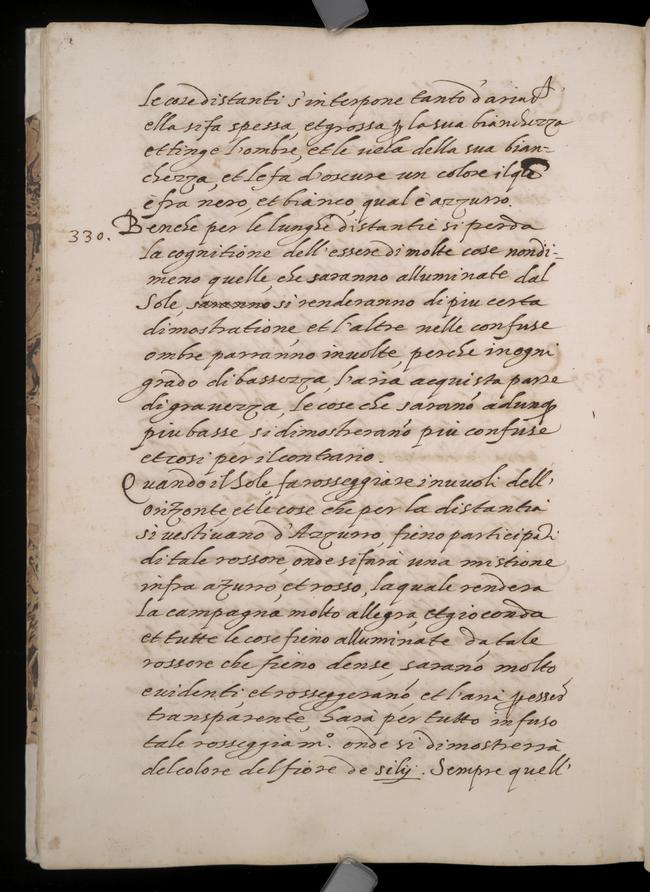 le cose distanti s'interpone tanto d'aria ch'
ella si fa spessa, et grossa p la sua bianchezza
et tinge l'ombre, et le vela della sua bian-
chezza, et le fa d'oscure un colore il qle
è fra nero, et bianco, qual è azzurro.
330. Benche per le lunghe distantie si perda
la cognitione dell'essere di molte cose nondi-
meno quelle, che saranno alluminate dal
Sole, saranno si renderanno di piu certa
dimostratione, et l'altre nelle confuse
ombre parranno involte, perche in ogni
grado di bassezza, l'aria acquista parte
di gravezza, le cose che sarano adunq
piu basse si dimostrerano più confuse
et cosi per il contrario.
Quando il Sole fa rosseggiare i nuvoli dell'
orizonte, et le cose che per la distantia
si vestivano d'Azzurro, fieno participati
di tale rossore, onde si farà una mistione
infra azurro, et rosso, laquale renderà
la campagna molto allegra, et gioconda
et tutte le cose fieno alluminate da tale
rossore che fieno dense, sarano molto
evidenti, et rosseggerano, et l'aria p esser
transparente, harà per tutto infuso
tale rosseggiam.º onde si dimostrerrà
del colore del fiore de silij. Sempre quell'